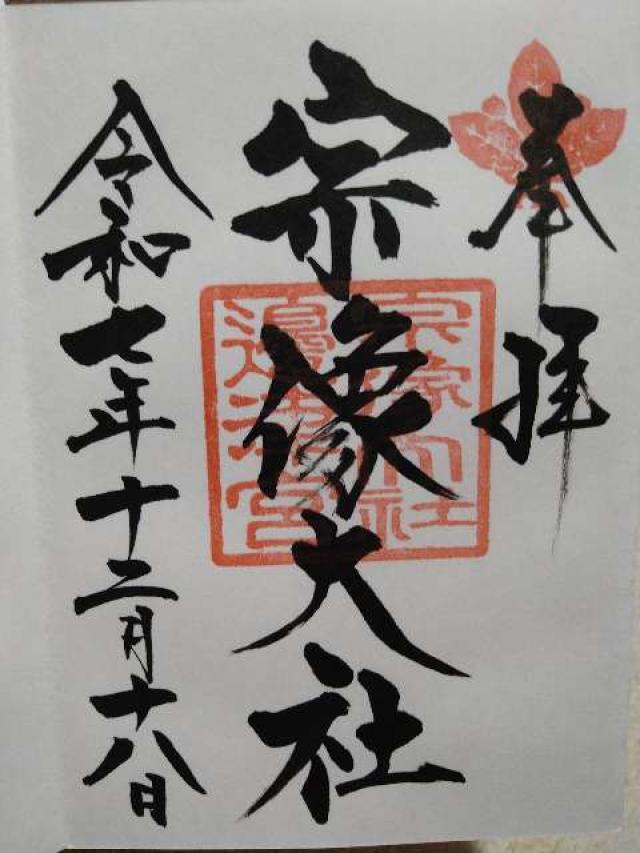 奉拝
宗像大社
宗像大社
邊津宮
令和七年十二月十八日